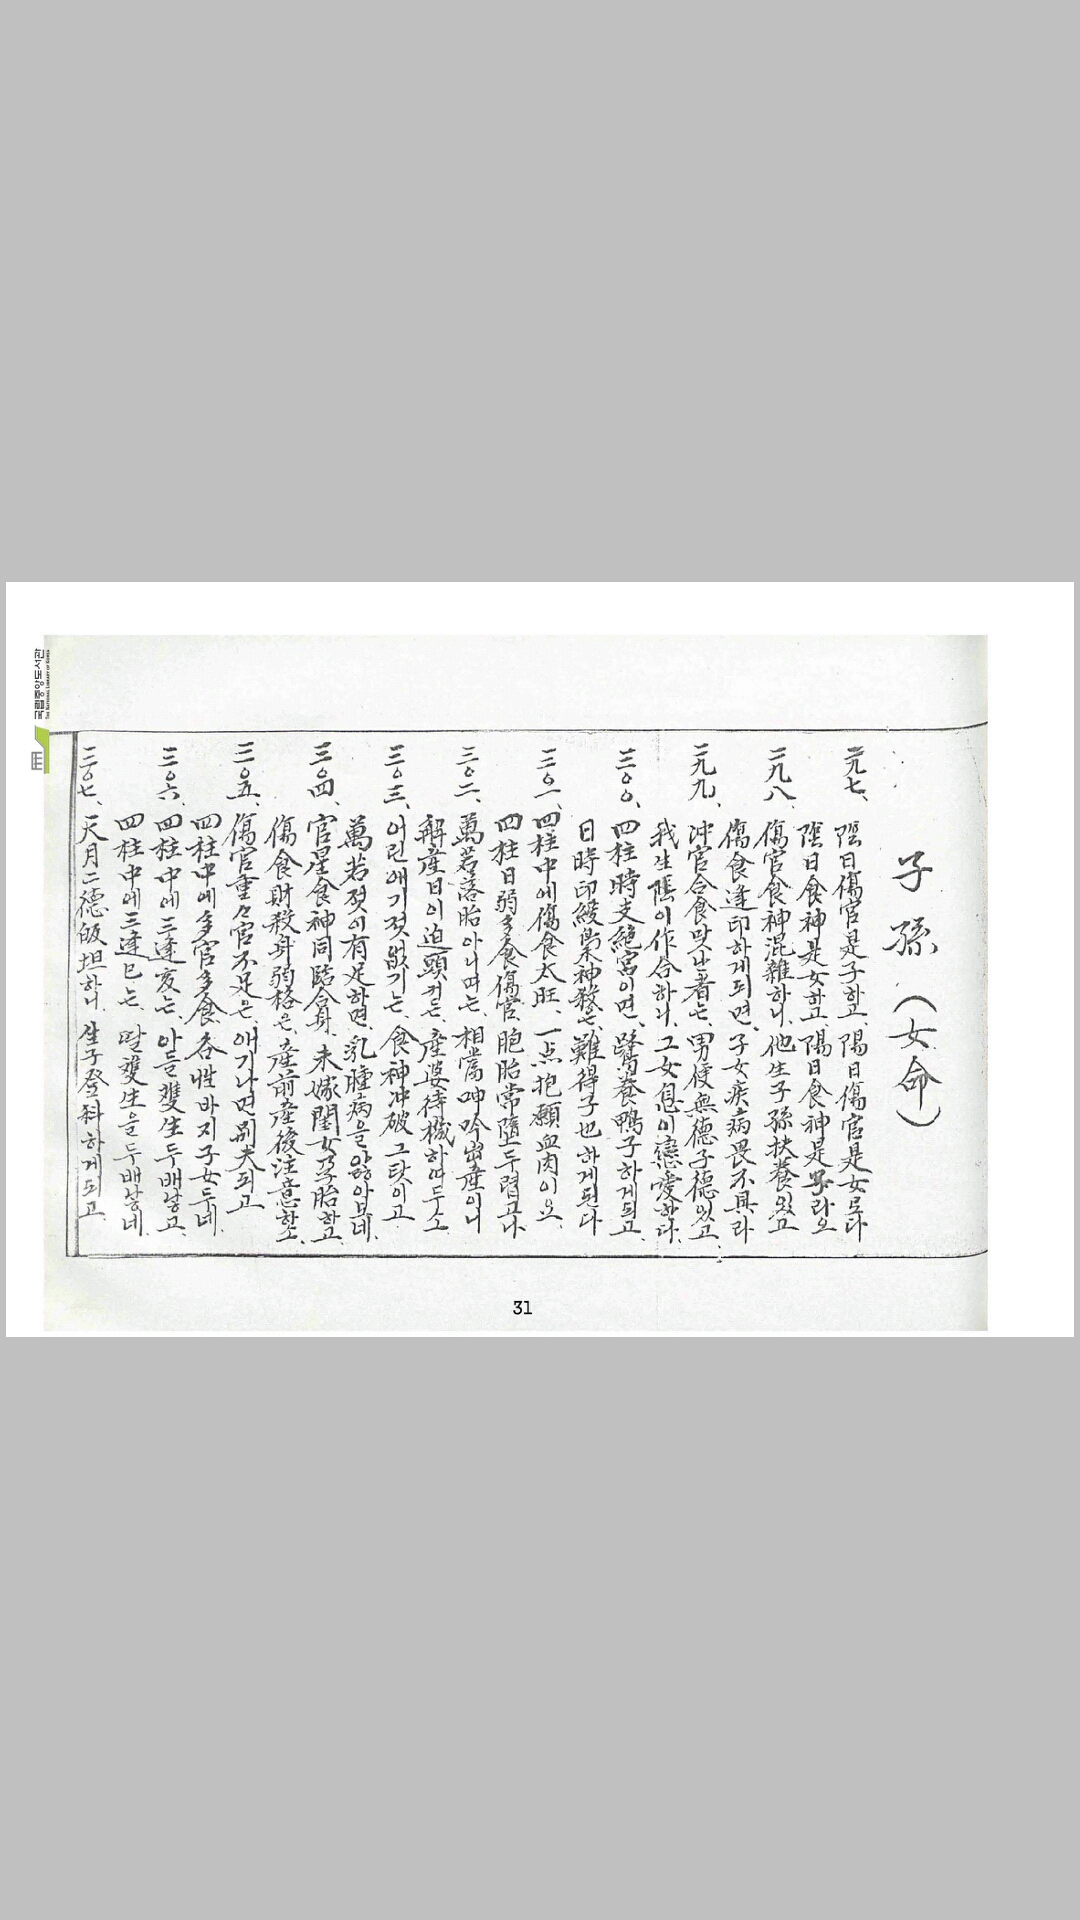 子孫 (女命)
二九七、陰日傷官是子하고 陽日傷官是女로다
陰日食神是女하고 陽日食神是男라오
二九八、傷官食神混雜하니 他生子孫扶養있고
傷食逢印하게되면、子女疾病畏不具라
二九九、冲官合食맞난者는、男便無德子德있고
我生隱이作合하니、그女息이戀愛한다.
三〇〇、四柱時支絶宮이면、鷄養鴨子하게되고
日時印綬梟神殺은、難得子也하게된다
三〇一、四柱中에傷食太旺、一点抱願血肉이요
四柱日弱多食傷官、胞胎常墮두렵고나
三〇二、萬若落胎아니며는、相當呻吟出産이니
解産日이迫頭커든、産婆待機하여두소
三〇三、어린애기젓없기는、食神冲破그탓이고
萬若젓이有足하면、乳腫病을앓아보네
三〇四、官星食神同臨合身、未嫁閨女孕胎하고
傷食財殺身弱格은、産前産後注意할소
三〇五、傷官重々官不足은、애기나면別夫되고
四柱中에多官多食、各姓바지子女두네
三〇六、四柱中에三逢亥는、아들雙生두배낳고
四柱中에三逢巳는、딸雙生을두배낳네
三〇七、天月二德 坦하니、生子登科하게되고
31
국립중앙도서관